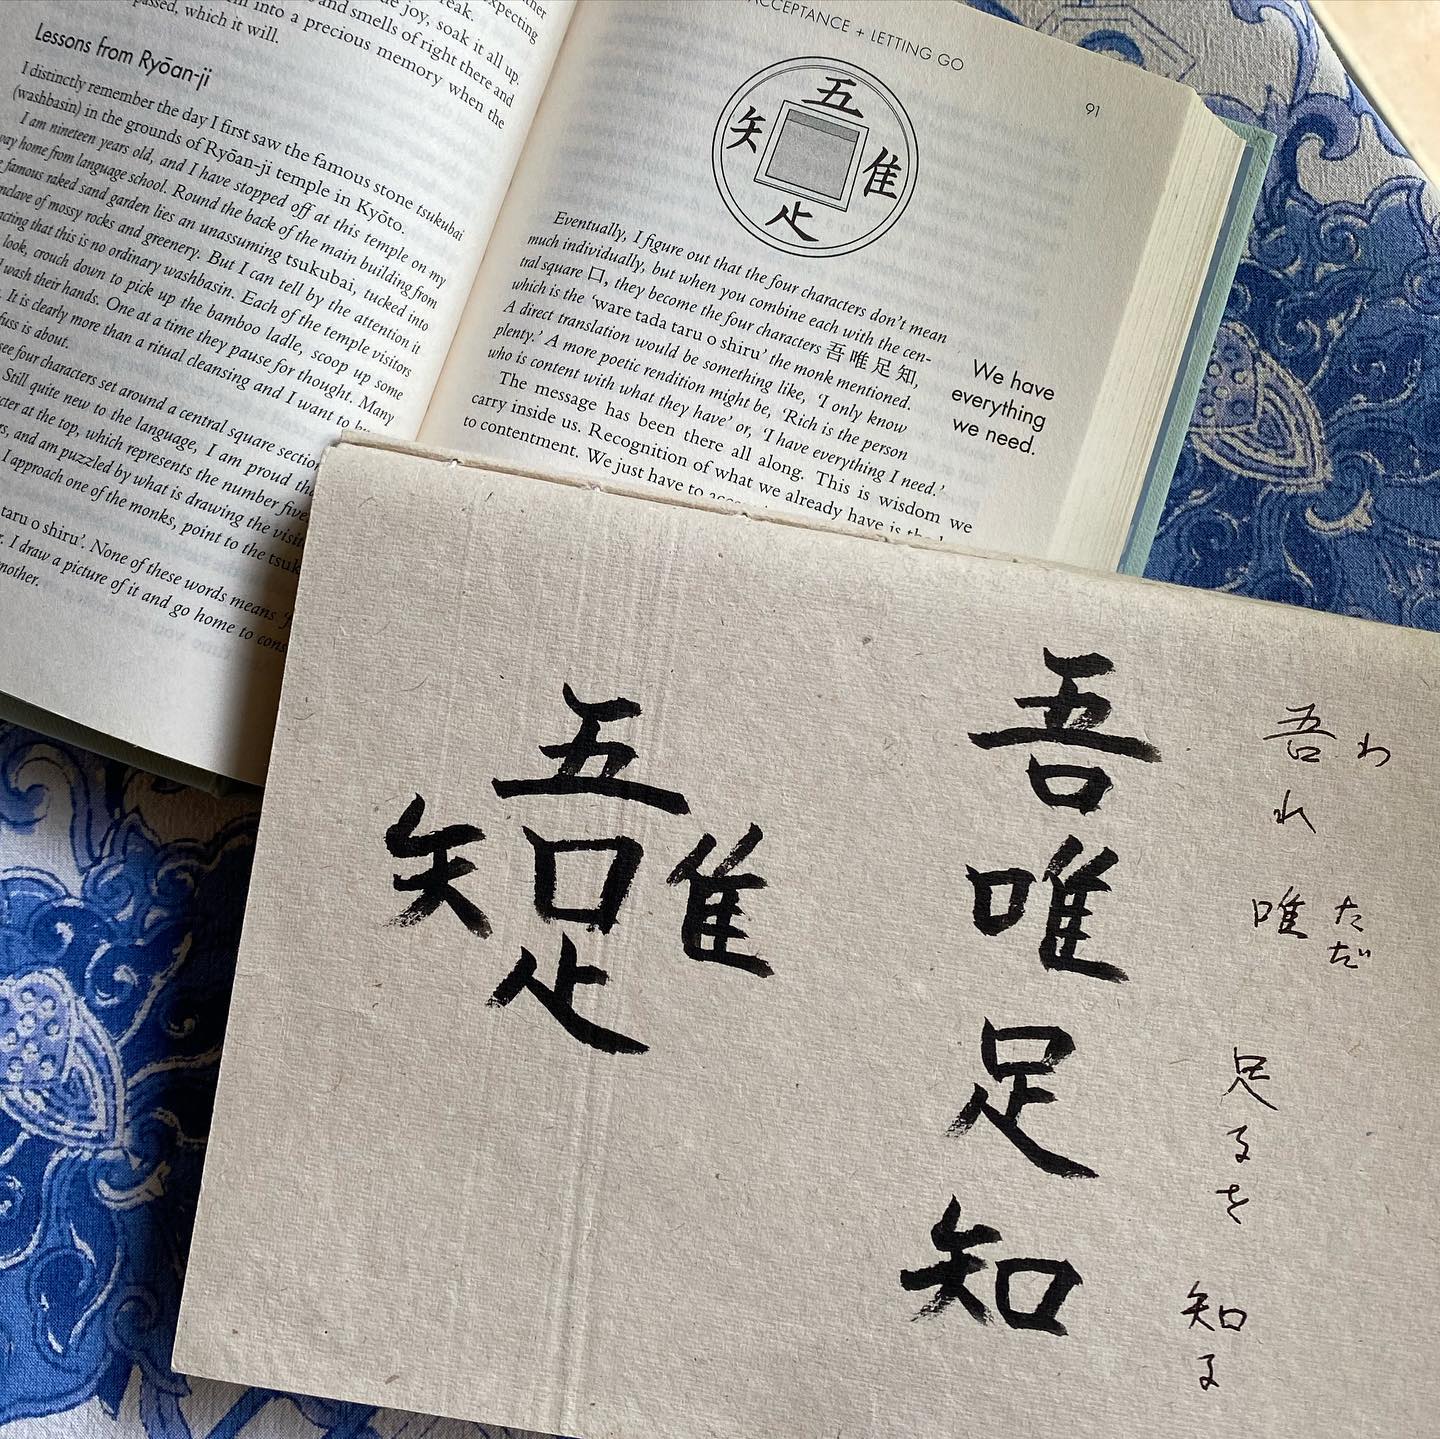 expecting
the joy, soak it all up.
and smells of right there and
into a precious memory when the
passed, which it will.
Lessons from Ryōan-ji
I distinctly remember the day I first saw the famous stone tsukubai
(washbasin) in the grounds of Ryōan-ji temple in Kyōto.
I am nineteen years old, and I have stopped off at this temple on my
way home from language school. Round the back of the main building from
famous raked sand garden lies an unassuming tsukubai, tucked into
enclave of mossy rocks and greenery. But I can tell by the attention it
that this is no ordinary washbasin. Each of the temple visitors
look, crouch down to pick up the bamboo ladle, scoop up some
wash their hands. One at a time they pause for thought. Many
It is clearly more than a ritual cleansing and I want to
fuss is about.
see four characters set around a central square section
Still quite new to the language, I am proud
at the top, which represents the number five
and am puzzled by what is drawing the
I approach one of the monks, point to the
taru o shiru'. None of these words means
I draw a picture of it and go home to
another.
ACCEPTANCE + LETTING GO
91
五
矢 隹
Eventually, I figure out that the four characters don't mean
much individually, but when you combine each with the cen-
tral square 口, they become the four characters 吾唯足知,
which is the 'ware tada taru o shiru' the monk mentioned.
A direct translation would be something like, 'I only know
plenty.' A more poetic rendition might be, 'Rich is the person
who is content with what they have' or, 'I have everything I need.'
The message has been there all along. This is wisdom we
carry inside us. Recognition of what we already have is the
to contentment. We just have to
We have
everything
we need.
五
矢口隹
吾唯足知
吾われ
唯ただ
足るを
知る